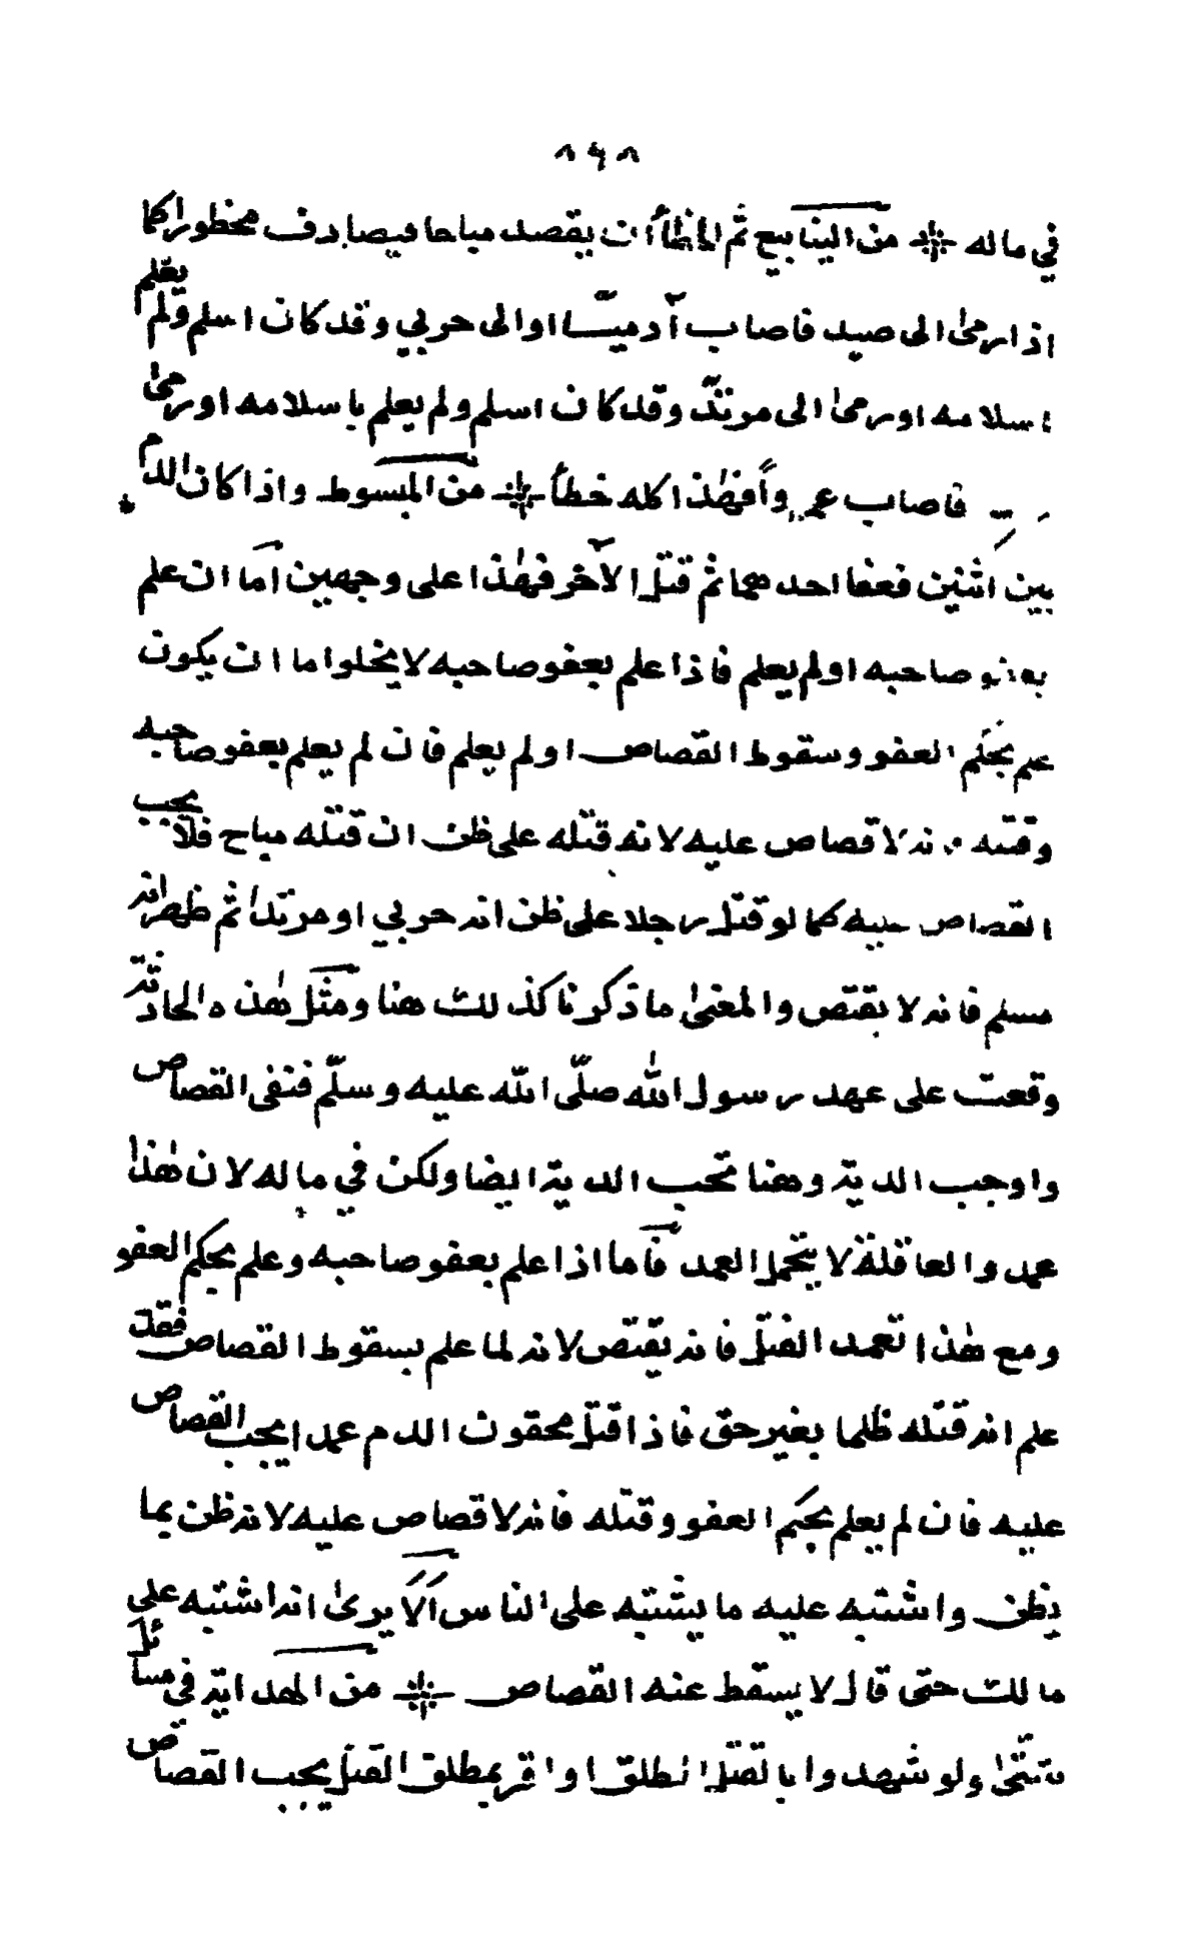 ٨٩٨
في ماله * من الينابيع ثم الخطأ ان يقصد مباحا فيصادف محظورا كما
اذا رمىٰ الى صيد فاصاب آدميّا او الى حربي وقد كان اسلم ولم يعلم
باسلامه او رمىٰ الى مرتدّ وقد كان اسلم ولم يعلم باسلامه او رمىٰ
فاصاب فهٰذا كله خطأ * من المبسوط واذا كان الدم
بين اثنين فعفا احدهما ثم قتل الآخر فهٰذا على وجهين اما ان علم
بعفو صاحبه او لم يعلم فاذا علم بعفو صاحبه لا يخلوا ما ان يكون
علم بحكم العفو وسقوط القصاص او لم يعلم فان لم يعلم بعفو صاحبه
وقتله فانه لا قصاص عليه لانه قتله على ظن ان قتله مباح فلا يجب
القصاص عليه كما لو قتل رجلا على ظن انه حربي او مرتد ثم ظهر انه
مسلم فانه لا يقتص والمعنىٰ ما ذكرنا كذلك هنا ومثل هٰذه الحادثة
وقعت على عهد رسول الله صلّى الله عليه وسلّم فنفى القصاص
واوجب الدية وهنا تجب الدية ايضا ولكن في ماله لان هٰذا
عمد والعاقلة لا يتحمل العمد فاما اذا علم بعفو صاحبه وعلم بحكم العفو
ومع هٰذا تعمد القتل فانه يقتص لانه لما علم بسقوط القصاص فقد
علم انه قتله ظلما بغير حق فاذا قتل محقون الدم عمدا يجب القصاص
عليه فان لم يعلم بحكم العفو وقتله فانه لا قصاص عليه لانه ظن بما
يظن واشتبه عليه ما يشتبه على الناس الا يرىٰ انه اشتبه على
مالك حتى قال لا يسقط عنه القصاص * من الهداية في مسائل
شتّىٰ ولو شهدوا بالقتل المطلق او اقر بمطلق القتل يجب القصاص